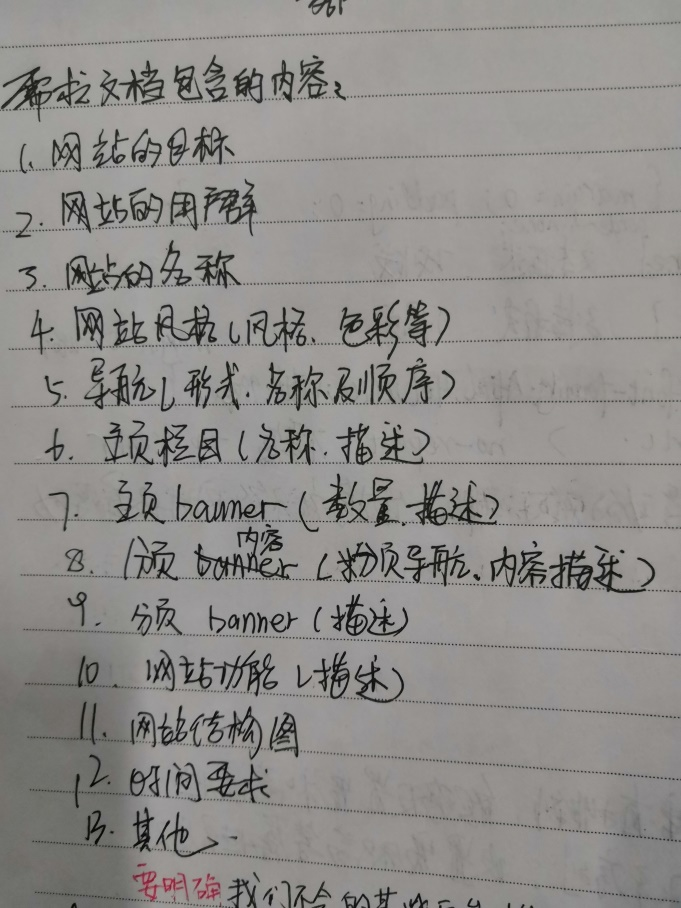 需求文档包含的内容:
1. 网站的目标
2. 网站的用户群
3. 网站的名称
4. 网站风格(风格、色彩等)
5. 导航(形式、名称及顺序)
6. 主页栏目(名称、描述)
7. 主页banner(数量、描述)
8. 分页内容(分页导航、内容描述)
9. 分页 banner(描述)
10. 网站功能(描述)
11. 网站结构图
12. 时间要求
13. 其他
要明确我们不会的其